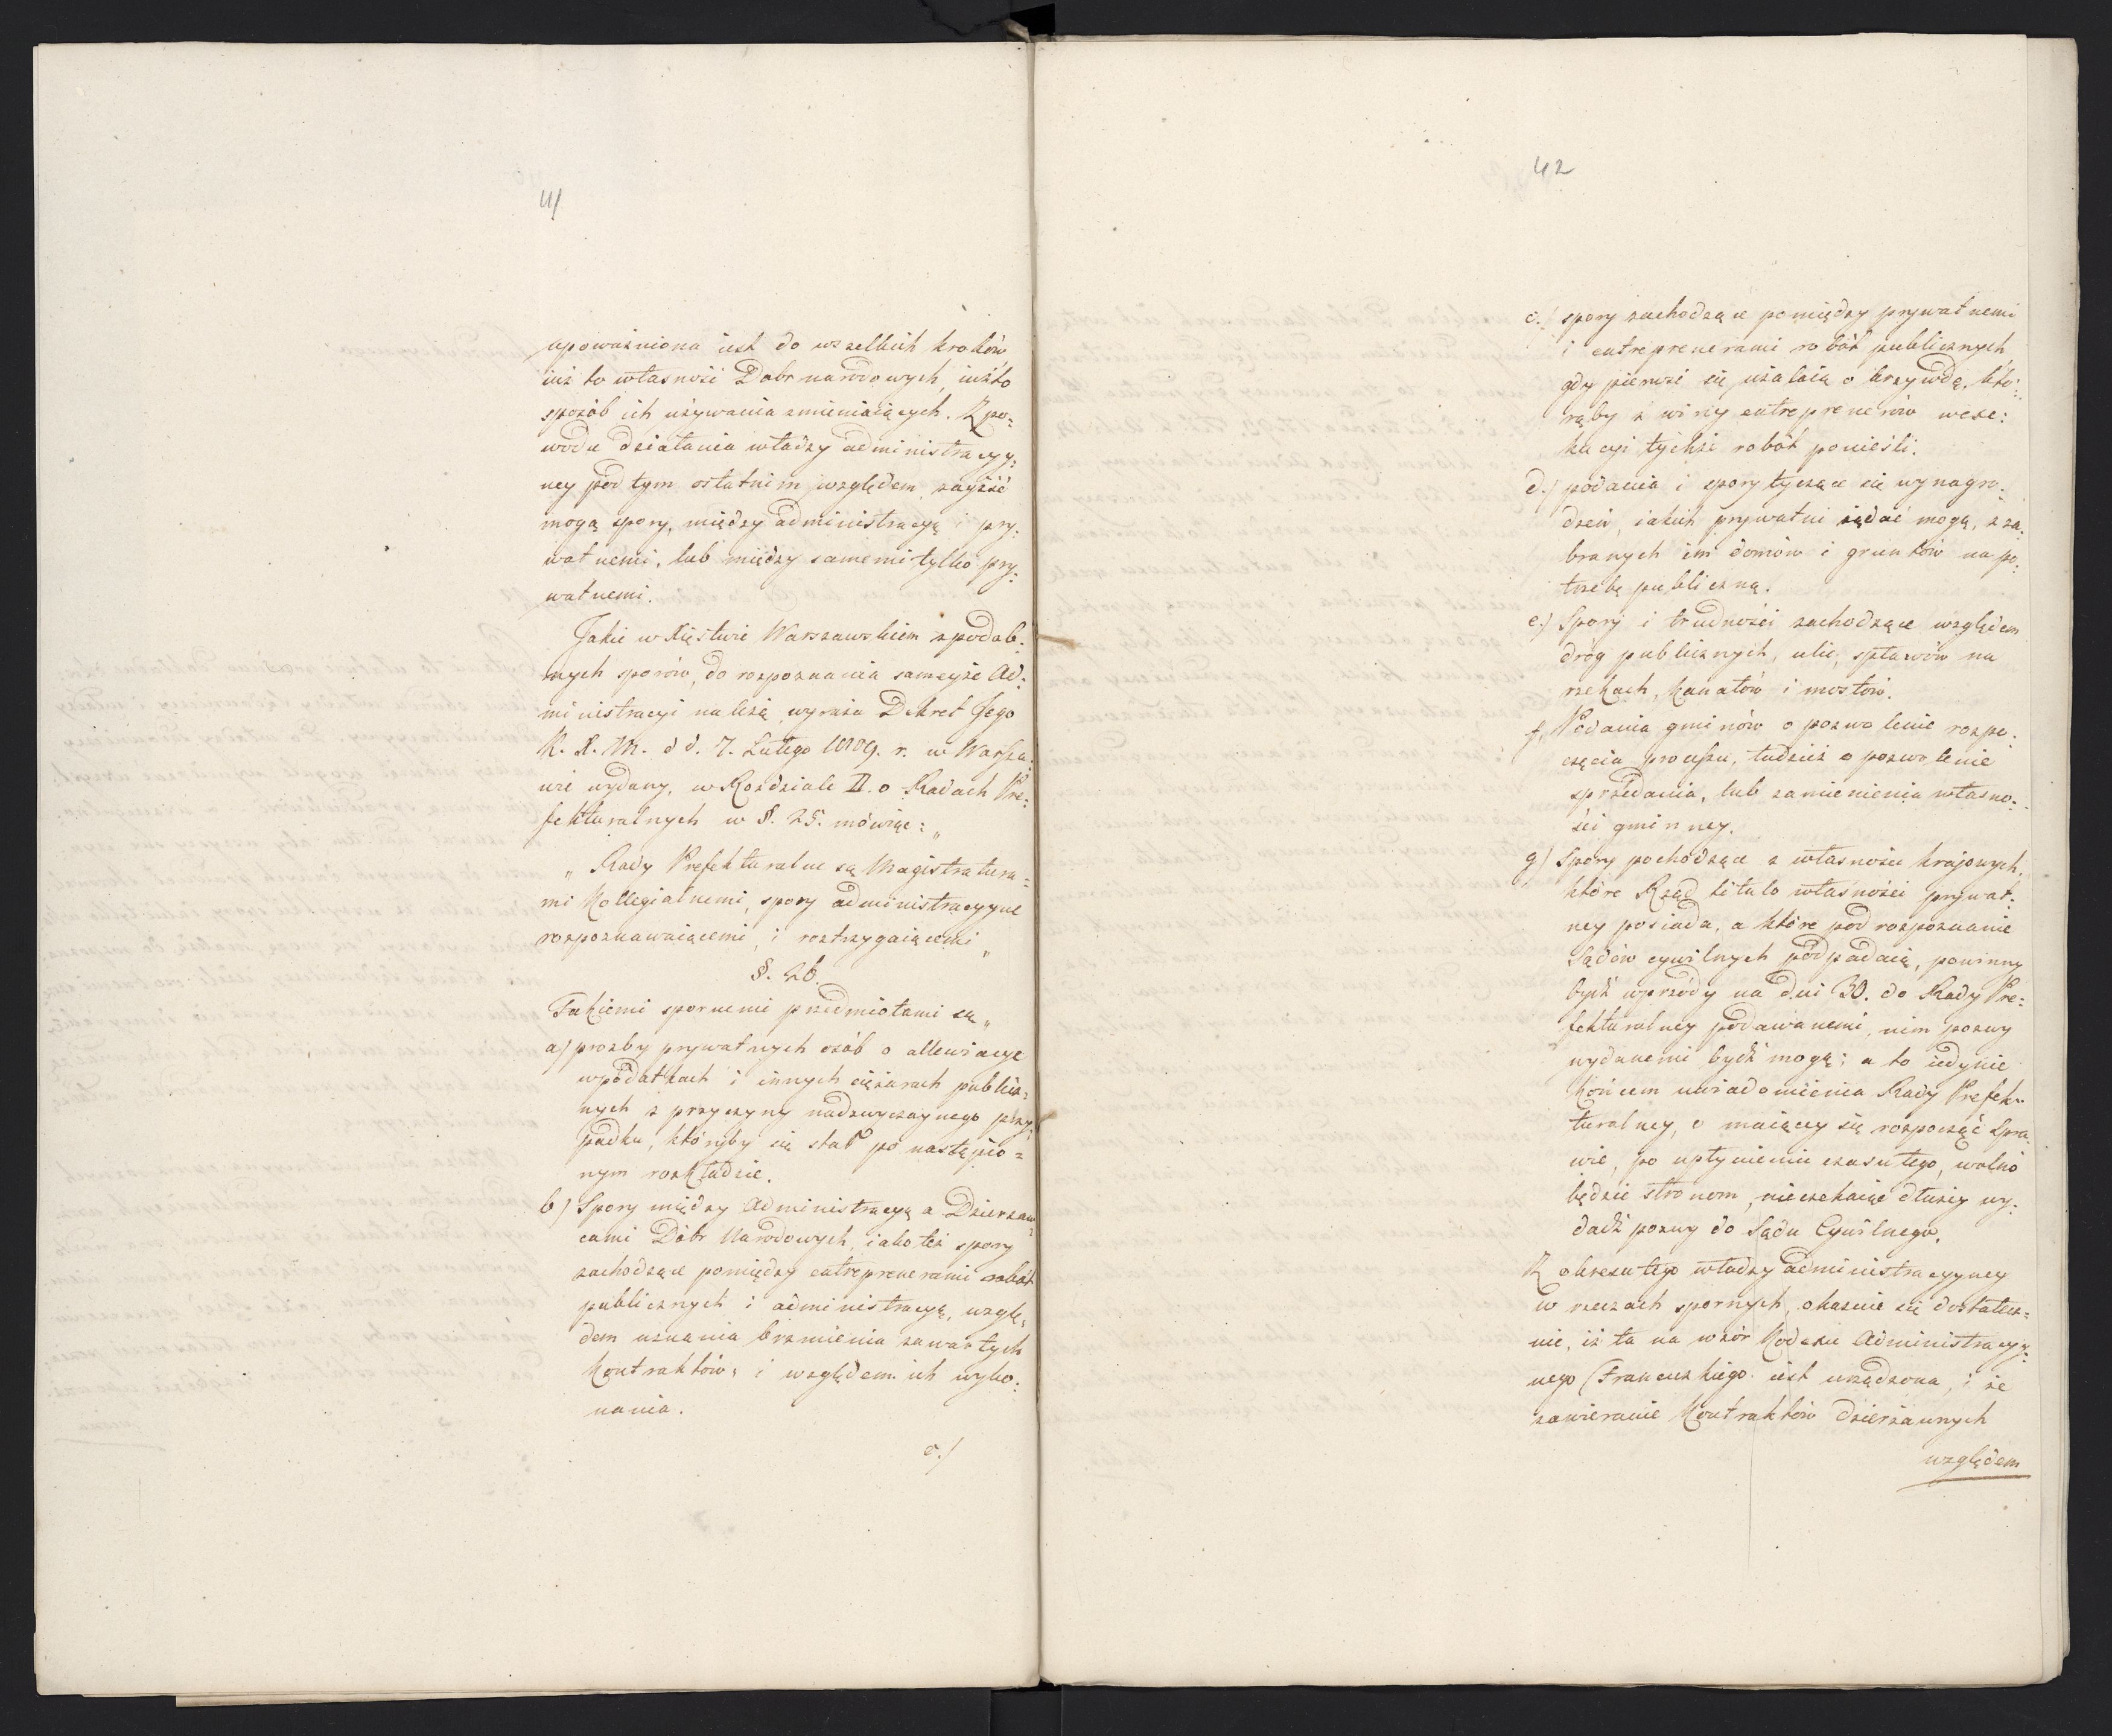 41
upoważniona iest do wszelkich kroków
iuż to własność Dobr narodowych, iużto
sposób ich używania zmieniaiących. Z po:
wodu działania władzy administracyy:
ney pod tym ostatnim względem, zayść
mogą spory, między administracyą i pry:
watnemi, lub między samemi tylko pry:
watnemi.
Jakie w Xięstwie Warszawskiem z podob:
nych sporów, do rozpoznania sameyże Ad:
ministracyi należą, wyraża Dekret Jego
K. X. M. d d. 7. Lutego 1809. r. w Warsza:
wie wydany, w Rozdziale II. o Radach Pre:
fekturalnych w §. 25. mówiąc: „
„ Rady Prefekturalne są Magistratura=
mi Kollegialnemi, spory administracyyne
rozpoznawaiącemi, i roztrzygaiącemi „
§. 26.
Takiemi spornemi przedmiotami są „
a) prozby prywatnych osób o allewiacye
w podatkach i innych ciężarach publicz=
nych z przyczyny nadzwyczaynego przy:
padku, któryby się stał po nastąpio=
nym rozkładzie.
b) Spory między Administracyą a Dzierzaw
cami Dóbr Narodowych, iako też spory
zachodzące pomiędzy entreprenerami robót
publicznych i administracyą, wzglę:
dem uznania brzmienia zawartych
Kontraktów, i względem ich wyko:
nania.
c./
42
c./ spory zachodzące pomiędzy prywatnemi
i entreprenerami robót publicznych,
gdy pierwsi się użalaią o krzywdę, któ:
rąby z winy entreprenerów w exe:
kucyi tychże robót ponieśli.
d./ podania i spory tyczące się wynagro:
dzeń, iakich prywatni żądać mogą, z za:
branych im domów i gruntów na po:
trzebę publiczną.
e./ Spory i trudności zachodzące względem
dróg publicznych, ulic, spławów na
rzekach, kanałów i mostów.
f. Podania gminów o pozwolenie rozpo:
częcia processu, tudzież o pozwolenie
sprzedania, lub zamienienia własno:
ści gminney.
g) Spory pochodzące z własności krajowych,
które Rząd titulo własności prywat:
ney posiada, a które pod rozpoznanie
Sądów cywilnych podpadaią, powinny
bydź wprzódy na dni 30. do Rady Pre:
fekturalney podawanemi, nim pozwy
wydanemi bydź mogą; a to iedynie
końcem uwiadomienia Rady Prefek:
turalney, o maiącey się rozpocząć Spra:
wie, po upłynieniu czasu tego, wolno
będzie stronom, nieczekaiąc dłużey wy:
dadź pozwy do Sądu Cywilnego.
Z okresu tego władzy administracyyney
w rzeczach spornych, okazuie się dostatecz=
nie, iż ta na wzór Kodexu Administracyy:
nego Francuzkiego iest urządzona, i że
zawieranie Kontraktów dzierżawnych
względem